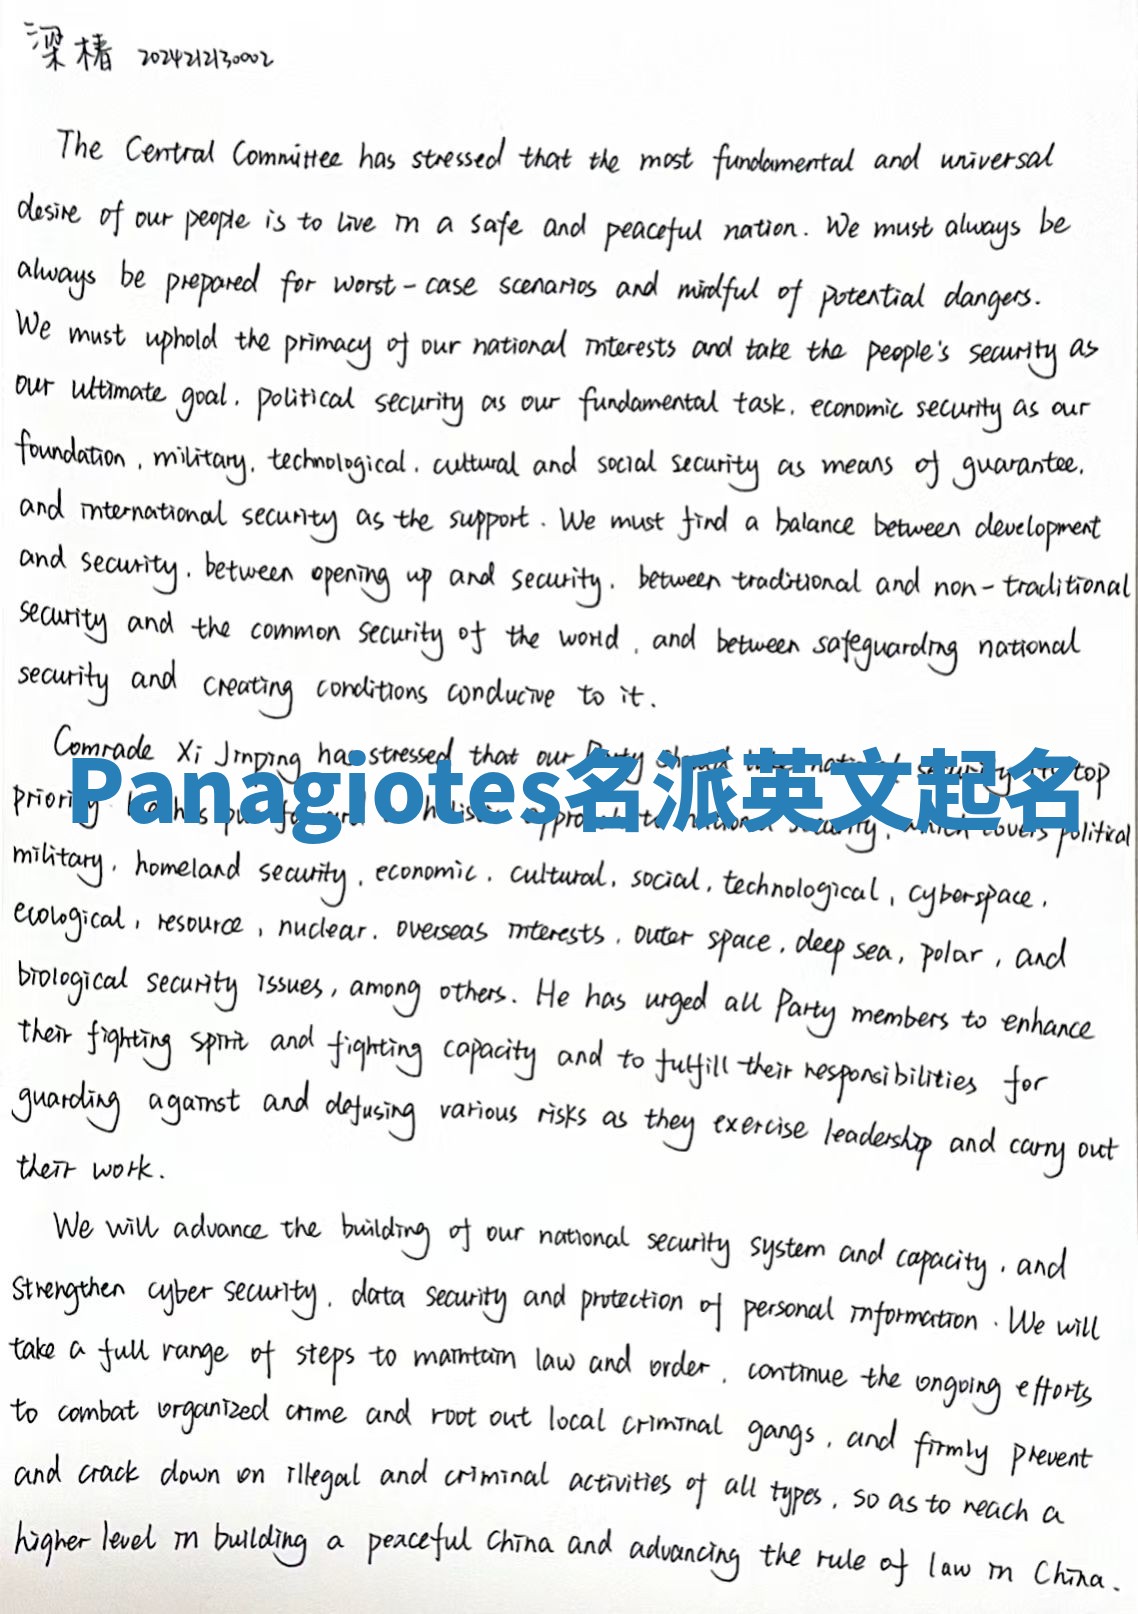 梁椿 2024212130002
The Central Committee has stressed that the most fundamental and universal
desire of our people is to live in a safe and peaceful nation. We must always be
always be prepared for worst-case scenarios and mindful of potential dangers.
We must uphold the primacy of our national interests and take the people's security as
our ultimate goal, political security as our fundamental task, economic security as our
foundation, military, technological, cultural and social security as means of guarantee,
and international security as the support. We must find a balance between development
and security, between opening up and security, between traditional and non-traditional
security and the common security of the world, and between safeguarding national
security and creating conditions conducive to it.
Comrade Xi Jinping has stressed that our Party should take national security its top
Panagiotes名派英文起名
priority. has put holistic approach to national security, which covers political
military, homeland security, economic, cultural, social, technological, cyberspace,
ecological, resource, nuclear, overseas interests, outer space, deep sea, polar, and
biological security issues, among others. He has urged all Party members to enhance
their fighting spirit and fighting capacity and to fulfill their responsibilities for
guarding against and defusing various risks as they exercise leadership and carry out
their work.
We will advance the building of our national security system and capacity, and
strengthen cyber security, data security and protection of personal information. We will
take a full range of steps to maintain law and order, continue the ongoing efforts
to combat organized crime and root out local criminal gangs, and firmly prevent
and crack down on illegal and criminal activities of all types, so as to reach a
higher level in building a peaceful China and advancing the rule of law in China.